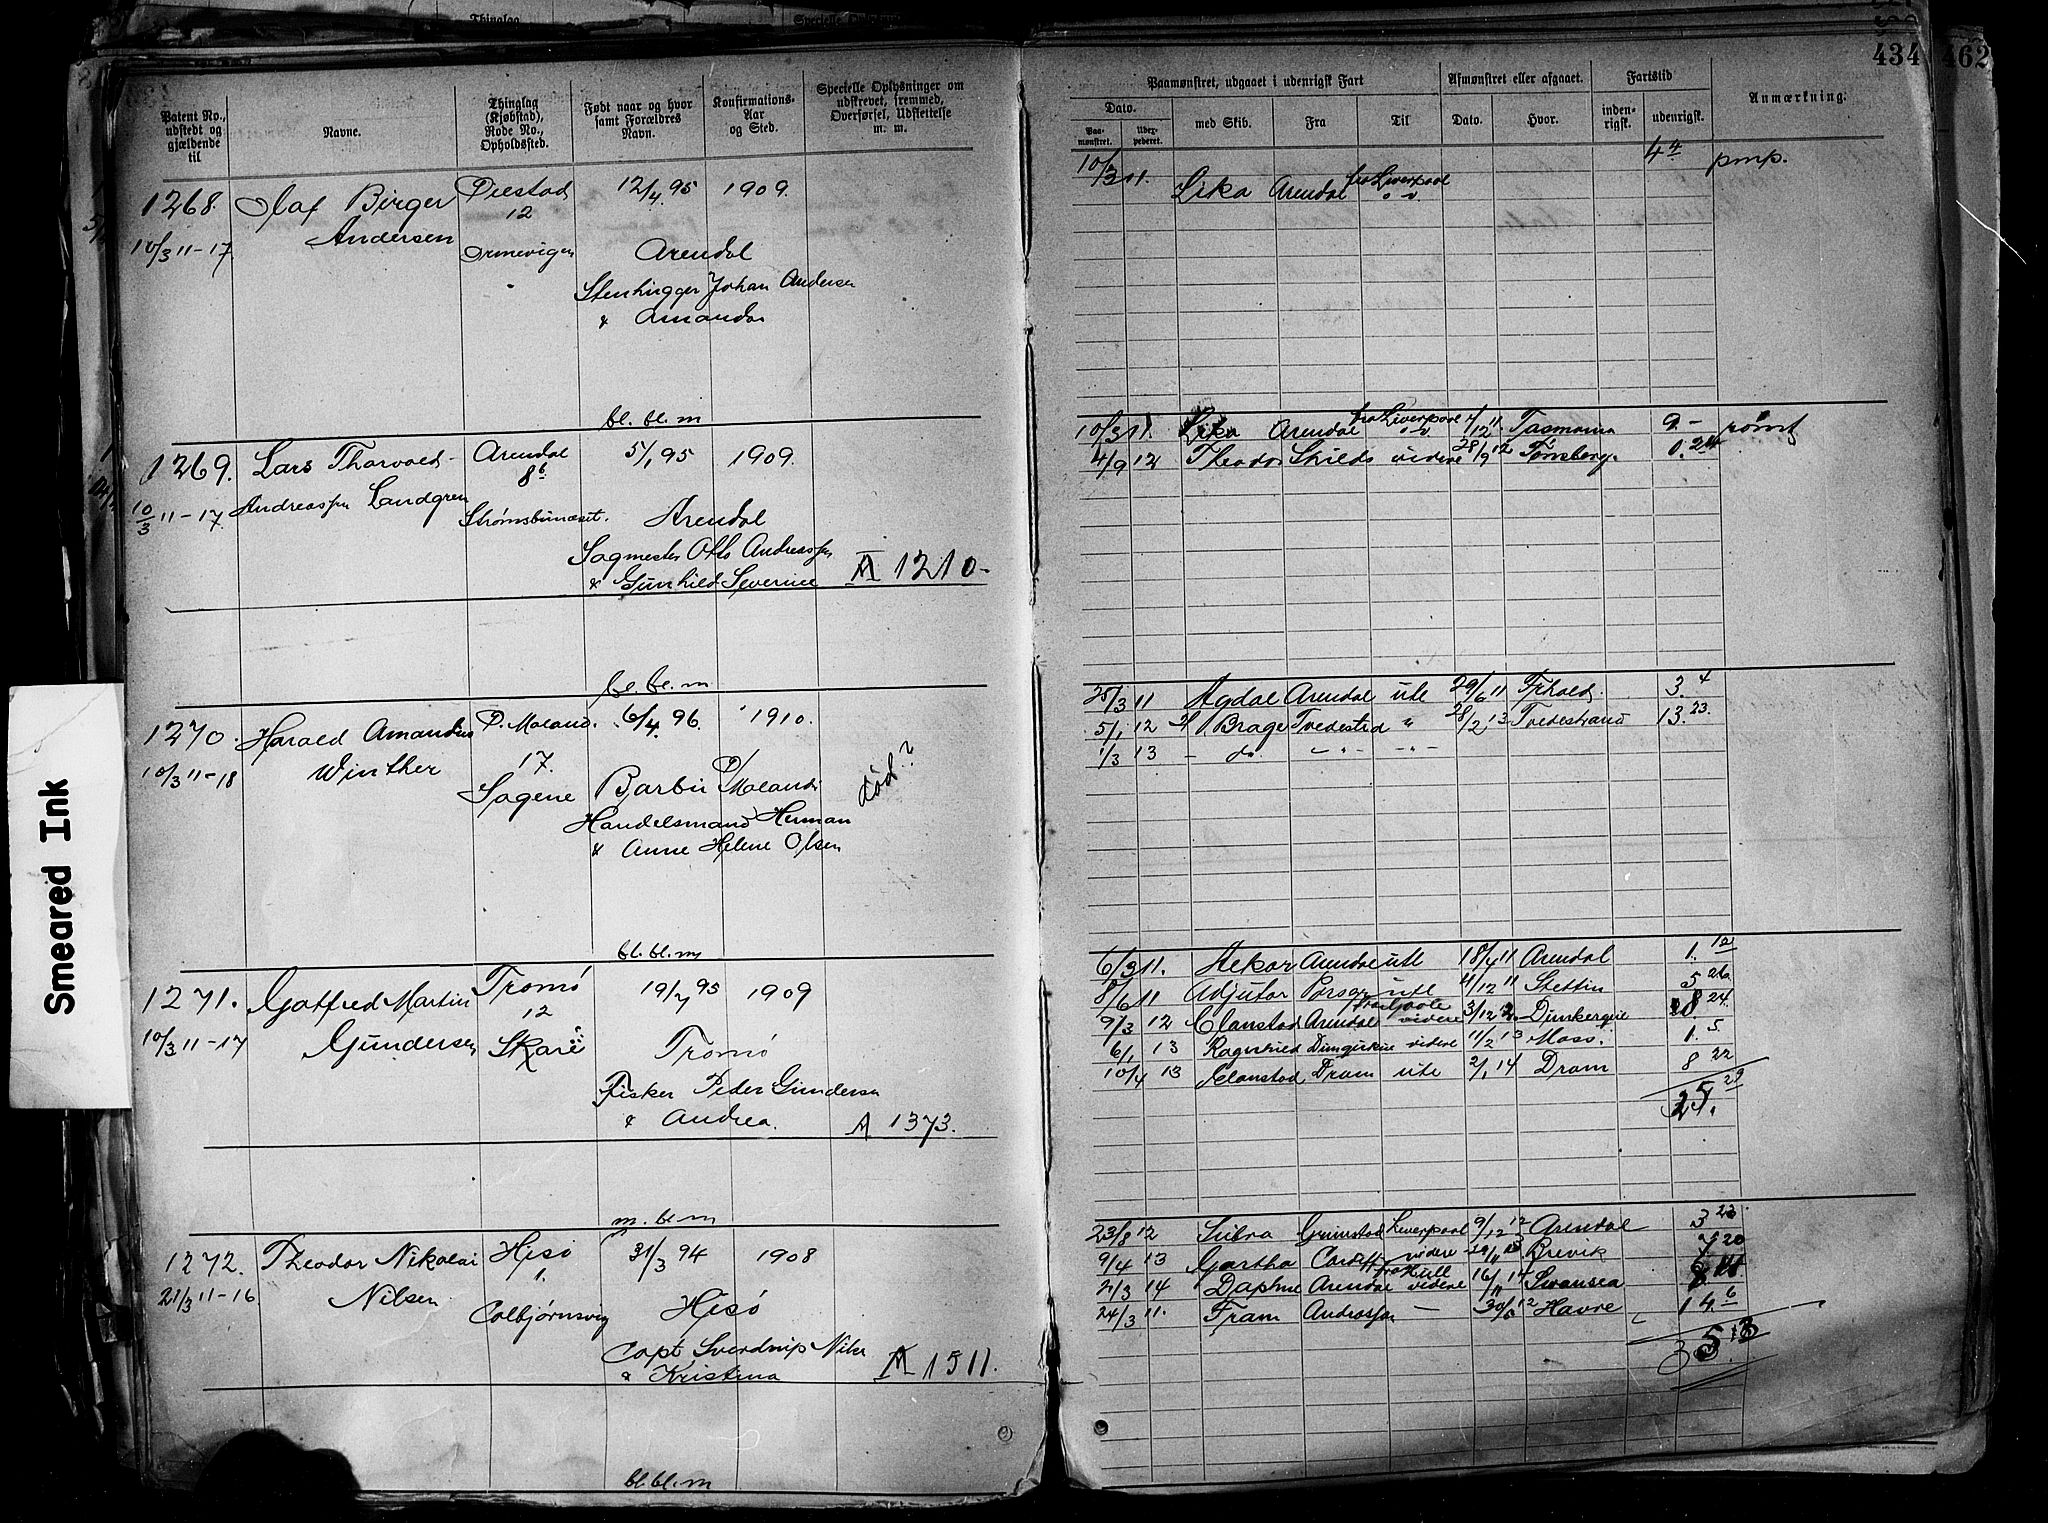 434
462
Smeared Ink
Patent No., udstedt og gjældende til
Navne.
Thinglag (Kjøbstad), Rode No., Opholdssted.
Født naar og hvor samt Forældres Navn.
Konfirmations-Aar og Sted.
Specielle Oplysninger om udskrevet, fremmed, Overførsel, Udslettelse m. m.
Paamønstret, udgaaet i udenrigsk Fart
Afmønstret eller afgaaet.
Fartstid
Anmærkning.
Dato.
Paa-mønstret.
med Skib.
Fra
Til
Dato.
Hvor.
inden-rigsk.
udenrigsk.
1268. Olaf Birger Øiestad 12/4 95 1909.
Andersen 12
10/3 11-17 Ormevigen Arendal
Stenhugger Johan Andersen
& Amanda
bl. bl. m
10/3 11. Lika Arendal fra Liverpool 4 4 pmp.
1269. Lars Thorvald Arendal 5/1 95 1909.
Andreassen Landgren 8 b
10/3 11-17 Strømsbunæset. Arendal
Sagmester Otto Andreassen
& Gunhild Severine A 1210-
bl. bl. m
10/3 11. Lika Arendal fra Liverpool 1/12 11 Tasmania 9 - rømt
4/9 12 Theodor Skields videre 28/9 12 Tønsberg. 0. 24
1270. Harald Amandus Ø. Moland. 6/4 96 1910.
Winther 17.
10/3 11-18 Sagene Barbu Ø/Moland
død?
Handelsmand Herman
& Anne Helene Olsen
bl. bl. m
25/3 11 Agdal Arendal ute 29/6 11 3. 4
5/1 12 Brage Tvedestrd " 28/2 13 Tvedestrand 13. 23.
1/3 13 - do. - " - - " -
1271. Gotfred Martin Tromø 19/7 95 1909
Gundersen 12
10/3 11-17 Skare Tromø
Fisker Peder Gundersen
& Andrea. A 1373.
m. bl. m
6/3 11. Hekor Arendal ute 18/4 11 Arendal 1. 12
8/6 11 Adjutor Porsgr ute 4/12 11 Stettin 5 26.
9/3 12 Arendal videre 3/12 12 Dunkerque 8 24.
6/1 13 Ragnhild videre 11/2 13 Moss. 1. 5
10/4 13 Dram ute 2/1 14 Dram 8 22
25. 29
1272. Theodor Nikolai Hisø 31/3 94 1908
Nilsen 1.
21/3 11-16 Colbjørnsvig Hisø
Capt Sverdrup Nilsen
& Kristina A 1511.
bl. bl. m
23/8 12 Grimstad Liverpool 9/12 12 Arendal 3 23.
9/4 13 Gartha Cardiff videre Brevik 7 20
2/3 14 Daphne Arendal fra Hull videre 16/11 14 Swansea 8
24/3 11. Fram - 30/6 12 Havre 14. 6
35